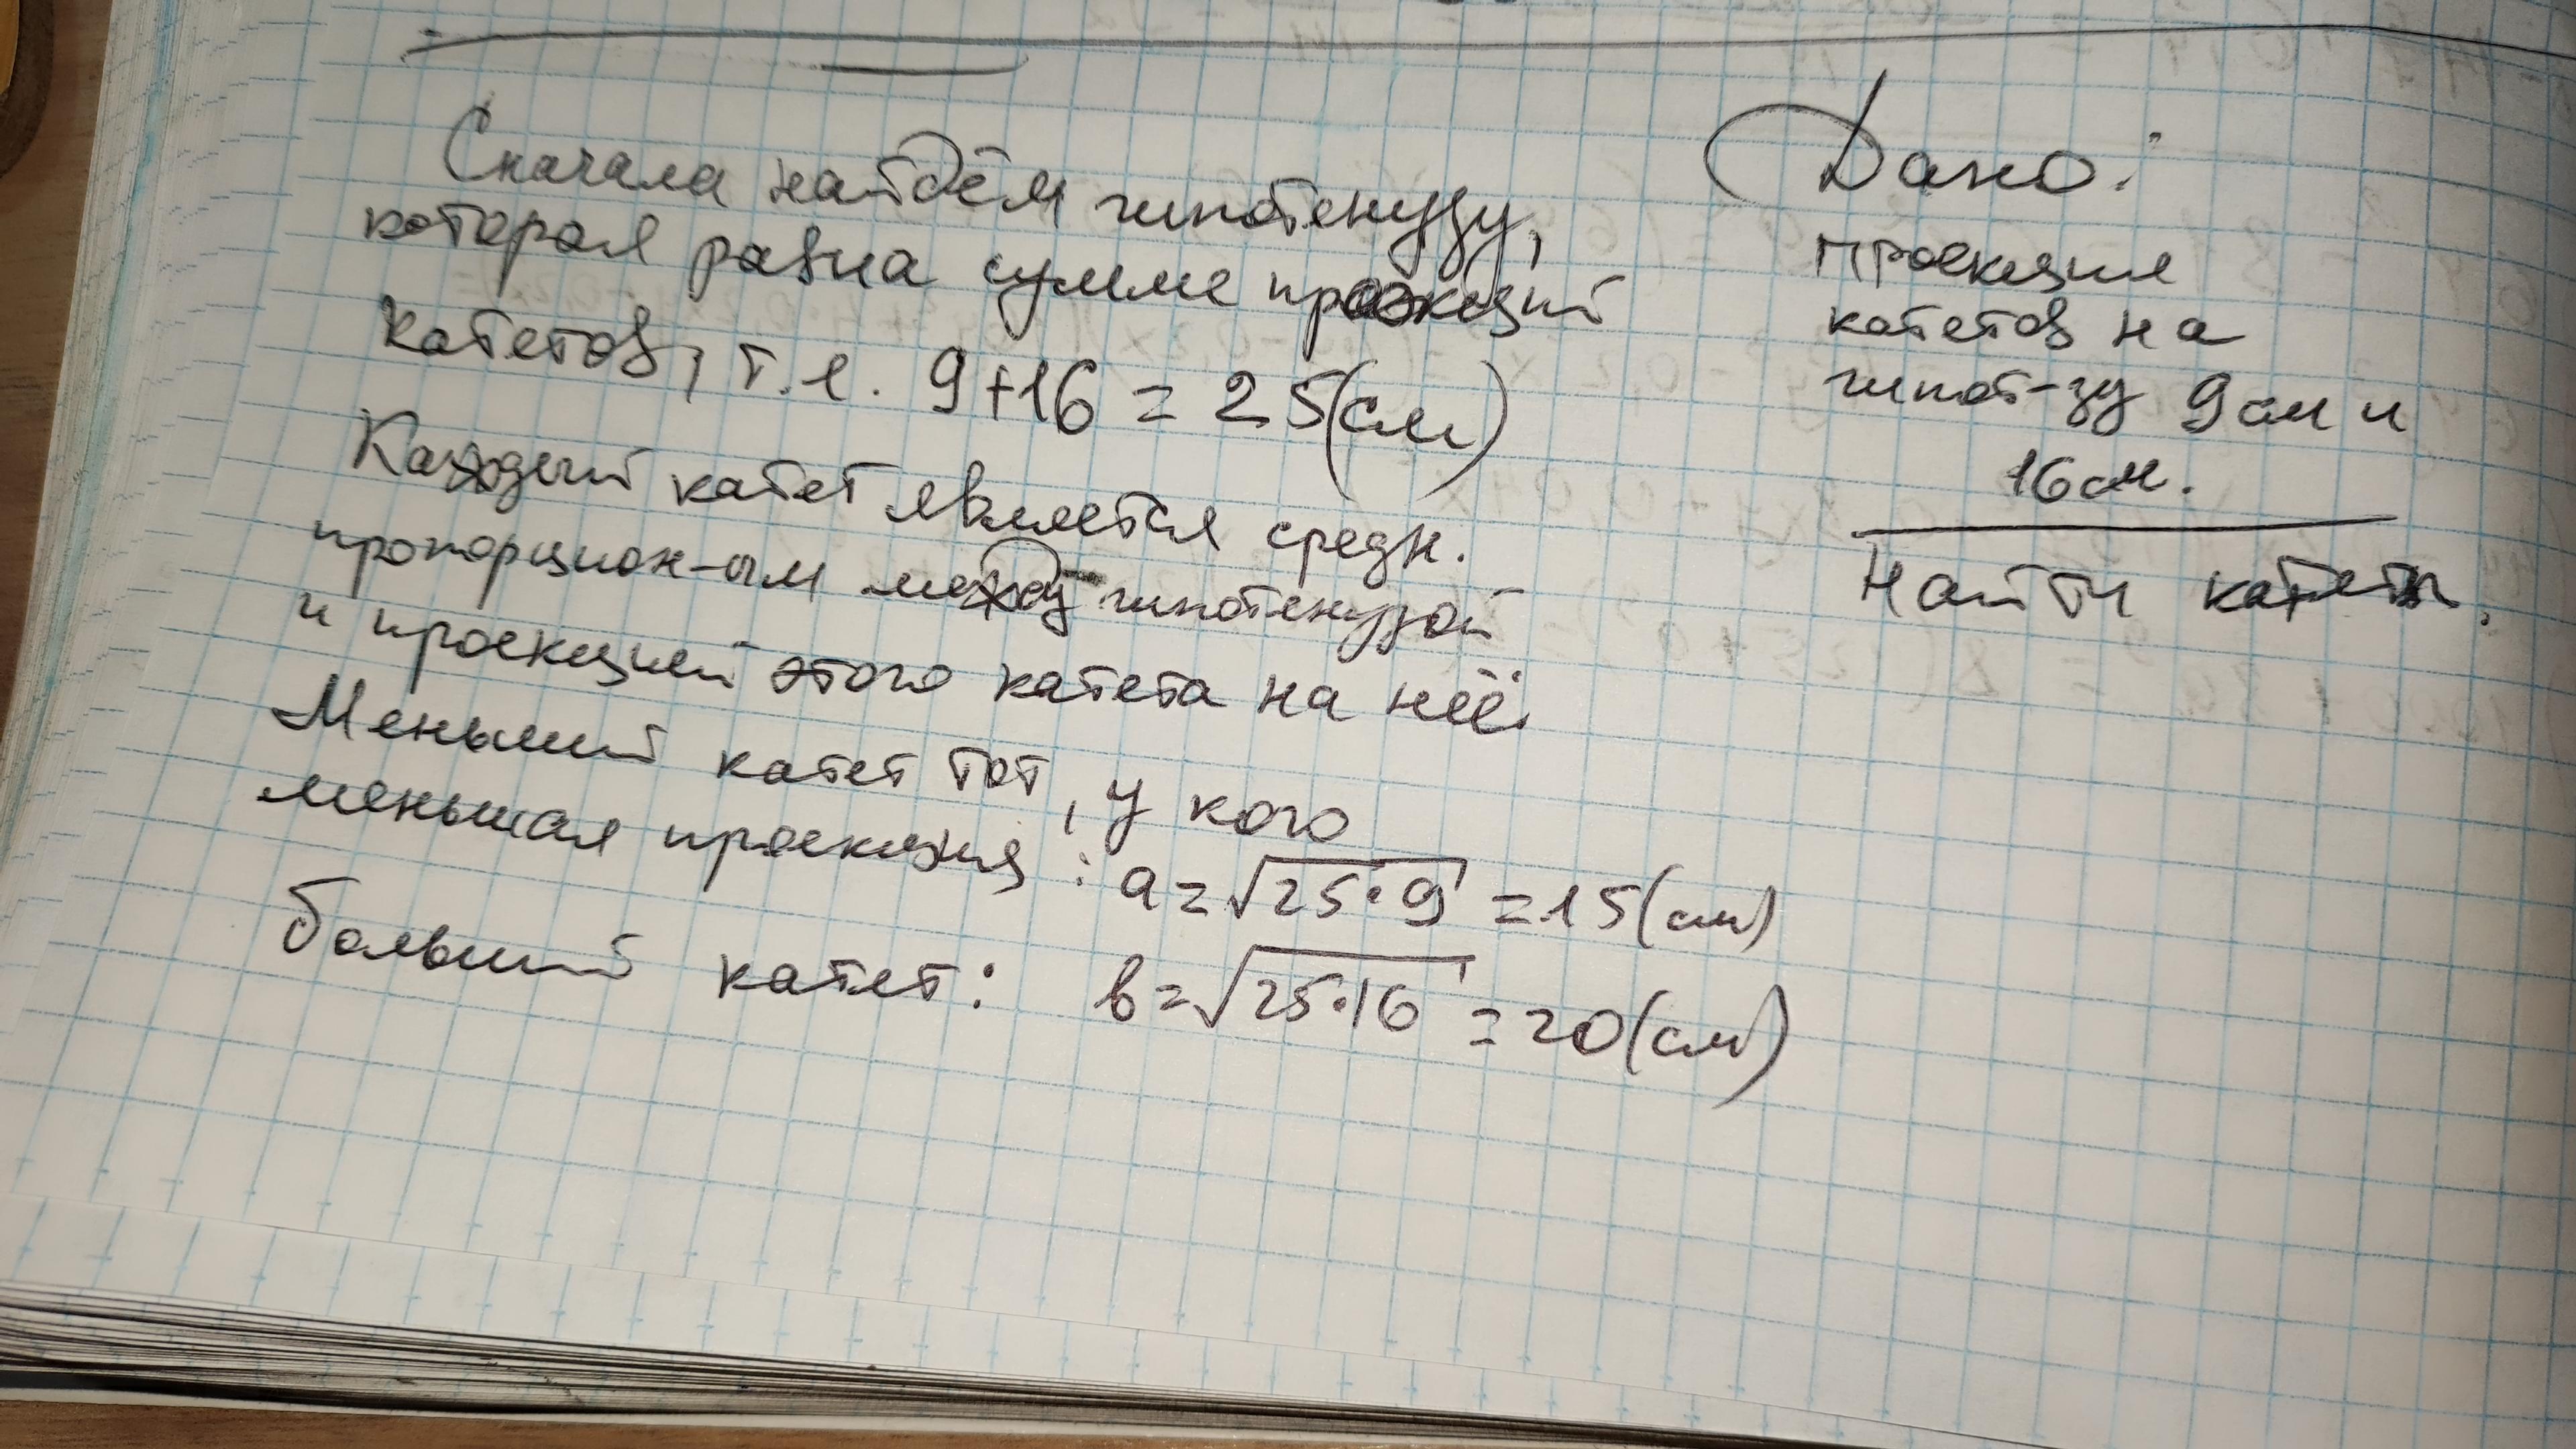 Сначала найдём гипотенузу,
которая равна сумме проекций
катетов, т.е. 9+16 = 25(см)
Каждый катет является средн.
пропорцион-ым между гипотенузой
и проекцией этого катета на неё.
Меньший катет тот, у кого
меньшая проекция: a=√25·9 =15(см)
Больший катет: b=√25·16 =20(см)
Дано:
проекция
катетов на
гипот-зу 9см и
16см.
Найти катеты.